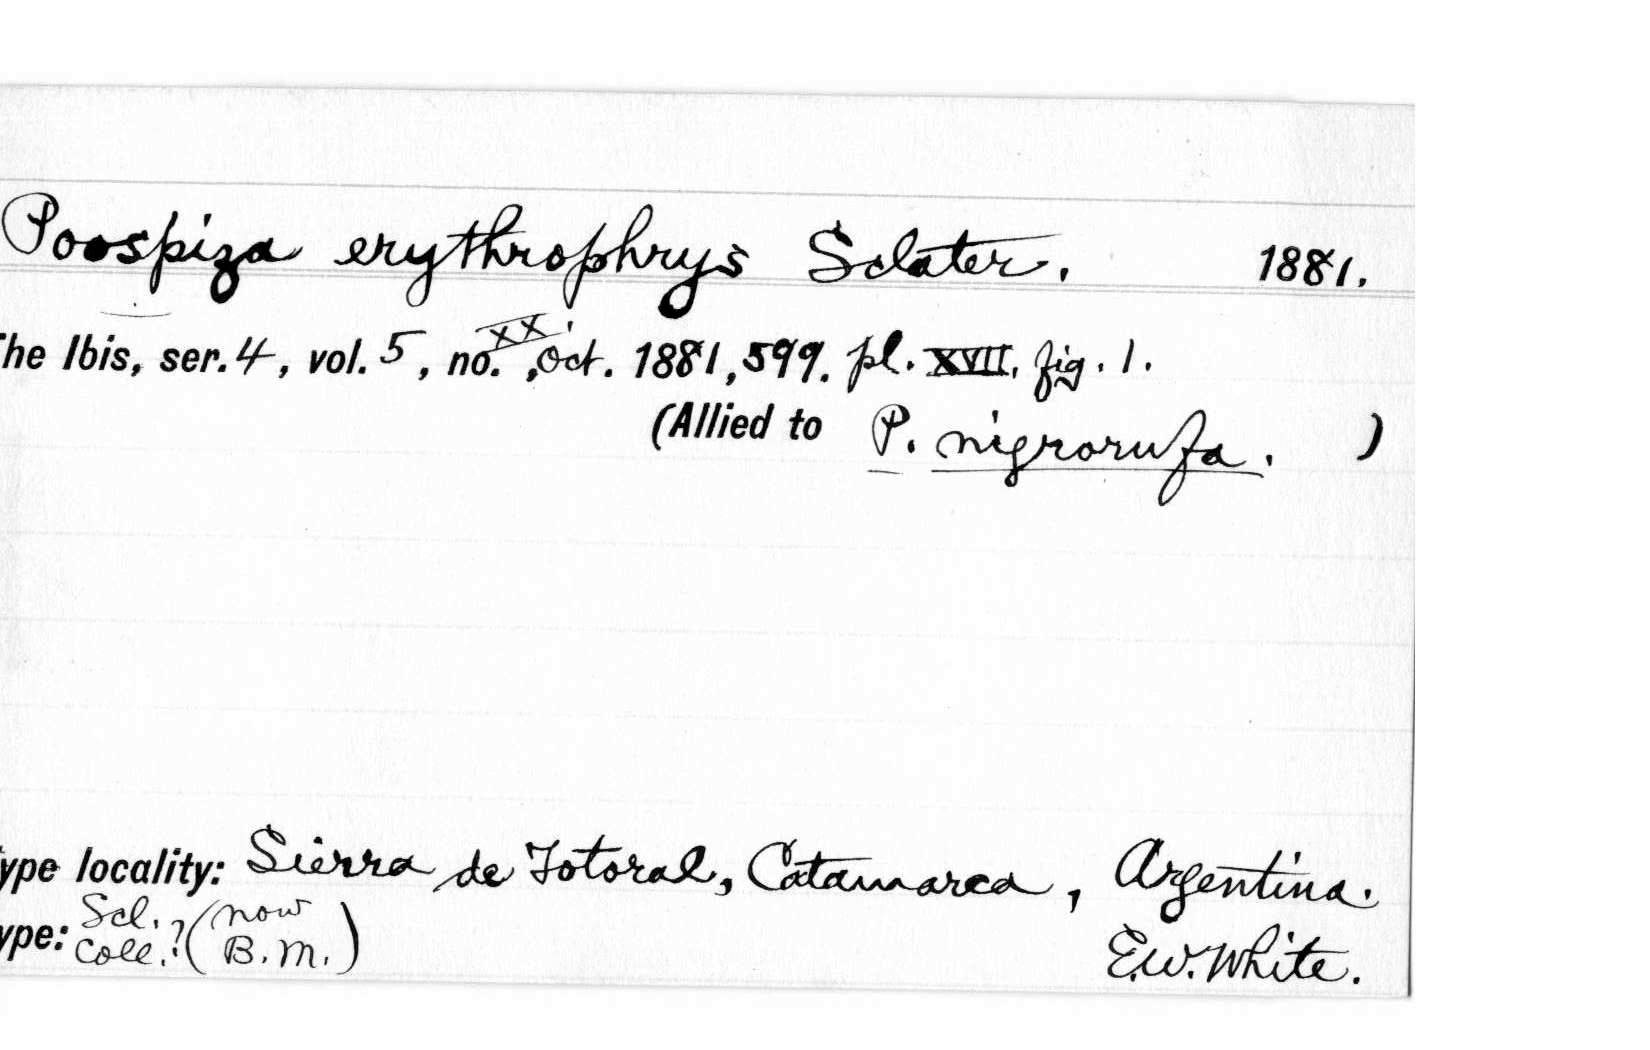 Poospiza erythrophrys Sclater. 1881.
he Ibis, ser. 4, vol. 5, no. XX, Oct. 1881, 599. pl. XVII. fig. 1.
(Allied to P. nigrorufa. )
ype locality: Sierra de Totoral, Catamarca, Argentina.
ype: Scl. Coll.? (now B.M.) E.W. White.